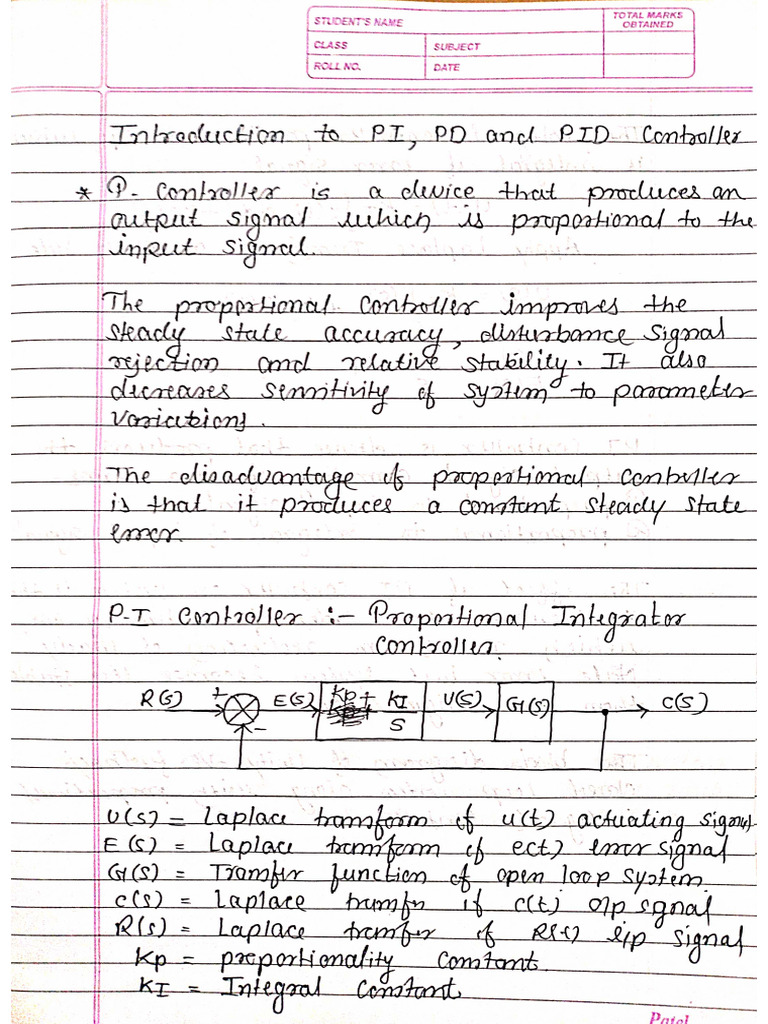 STUDENT'S NAME
TOTAL MARKS OBTAINED
CLASS
SUBJECT
ROLL NO.
DATE
Introduction to PI, PD and PID Controller
* P- Controller is a device that produces an
output signal which is proportional to the
input signal.
The proportional controller improves the
steady state accuracy, disturbance signal
rejection and relative stability. It also
decreases sensitivity of system to parameter
variations.
The disadvantage of proportional controller
is that it produces a constant steady state
error.
P-I Controller :- Proportional Integrator
Controller.
R(s) + - E(s) Kp + KI/S U(s) G(s) C(s)
U(s) = Laplace transform of u(t) actuating signal
E(s) = Laplace transform of e(t) error signal
G(s) = Transfer function of open loop system
C(s) = Laplace transfer of c(t) o/p signal
R(s) = Laplace transfer of R(t) i/p signal
Kp = proportionality constant
KI = Integral constant
Patel